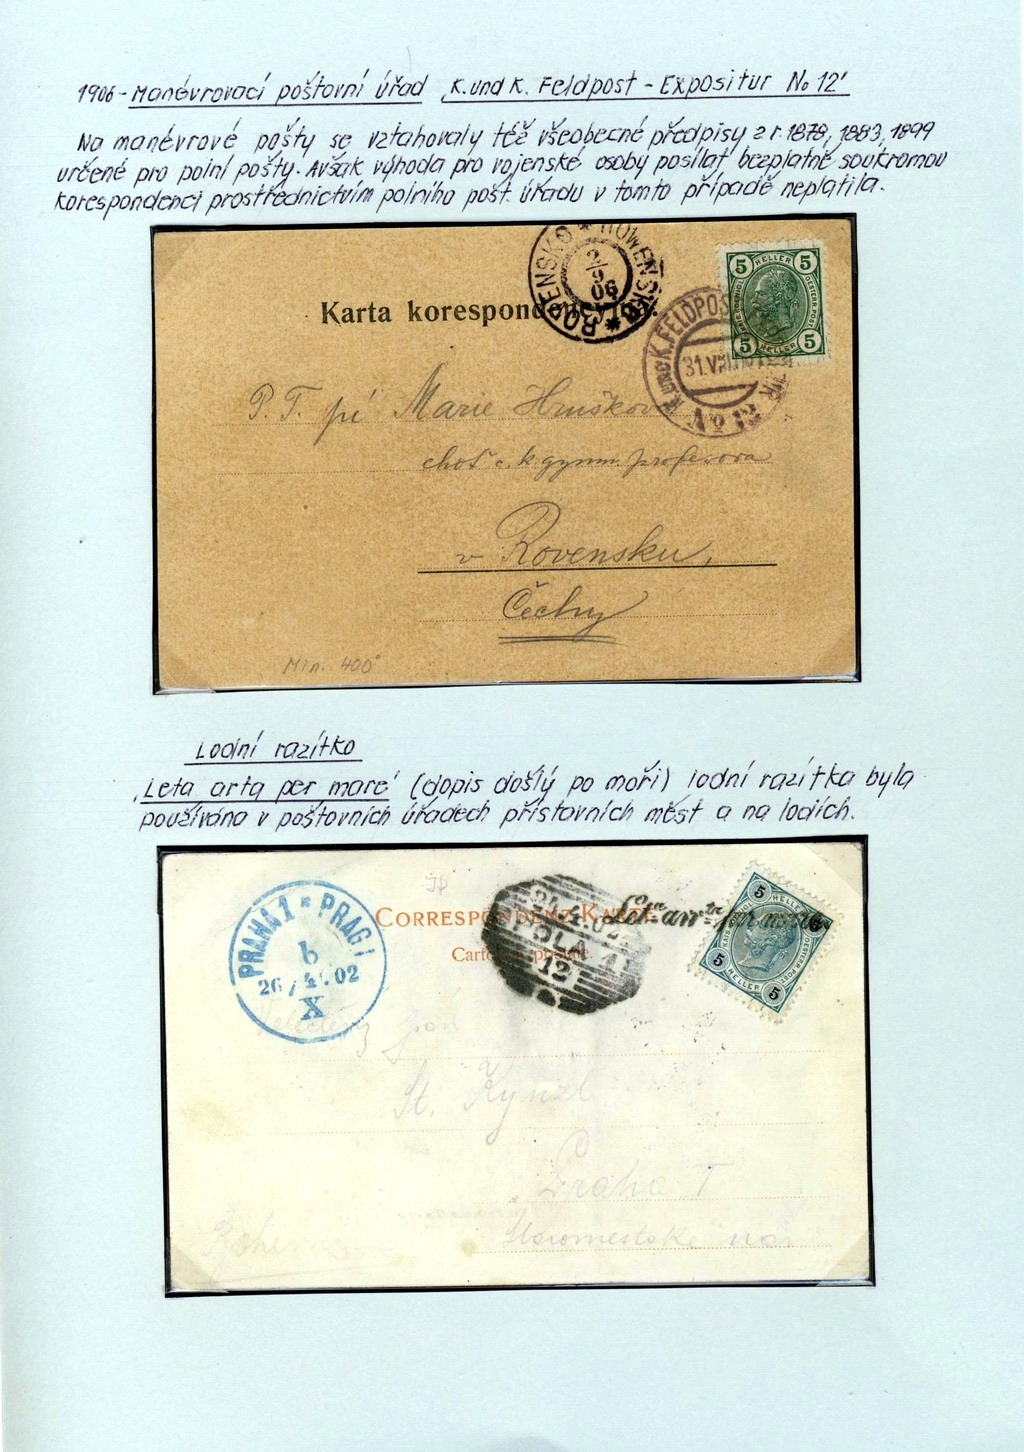 1906 - Manévrovací poštovní úřad ‚K. und K. Feldpost - Expositur No 12'
Na manévrové pošty se vztahovaly též všeobecné předpisy z r. 1878, 1883, 1899
určené pro polní pošty. Avšak výhoda pro vojenské osoby posílat bezplatně soukromou
korespondenci prostřednictvím polního pošt. úřadu v tomto případě neplatila.
ROVENSKO * ROWENSKO *
2/9
06
5 HELLER 5
5 HELLER 5
Karta korespondencyjna.
K. und K. FELDPOS
31.VIII
No 12
P. T. pí Marie Hrušková
choť c. k. gymn. profesora
v Rovensku,
Čechy
Min. 400
Lodní razítko
‚Leta arta per mare' (dopis došlý po moři) lodní razítka byla
používána v poštovních úřadech přístavních měst a na lodích.
PRAHA 1 * PRAG 1
b
26/4.02
X
CORRESPONDENZ-KARTE
Carte postale
24.4.02
POLA 1
12
Letª arrᵗª per mare
5 HELLER 5
5 HELLER 5
pan
St. Kynzl
Praha I
Staroměstské nám